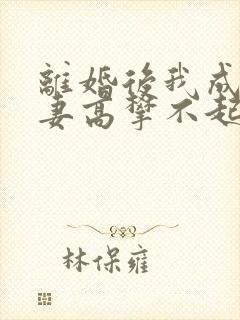 離婚後我成
妻高攀不起
林保雍